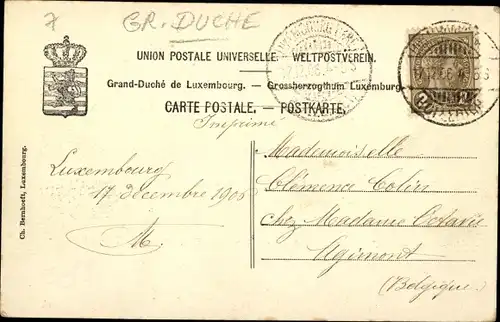 7
GR. DUCHE
UNION POSTALE UNIVERSELLE. WELTPOSTVEREIN.
Grand-Duché de Luxembourg. — Grossherzogthum Luxemburg.
CARTE POSTALE, — POSTKARTE,
Imprimé
Luxembourg
17 décembre 1906
M.
Mademoiselle
Clémence Colin
chez Madame Octavie
Agimont
(Belgique)
Ch. Bernhoeft, Luxembourg.